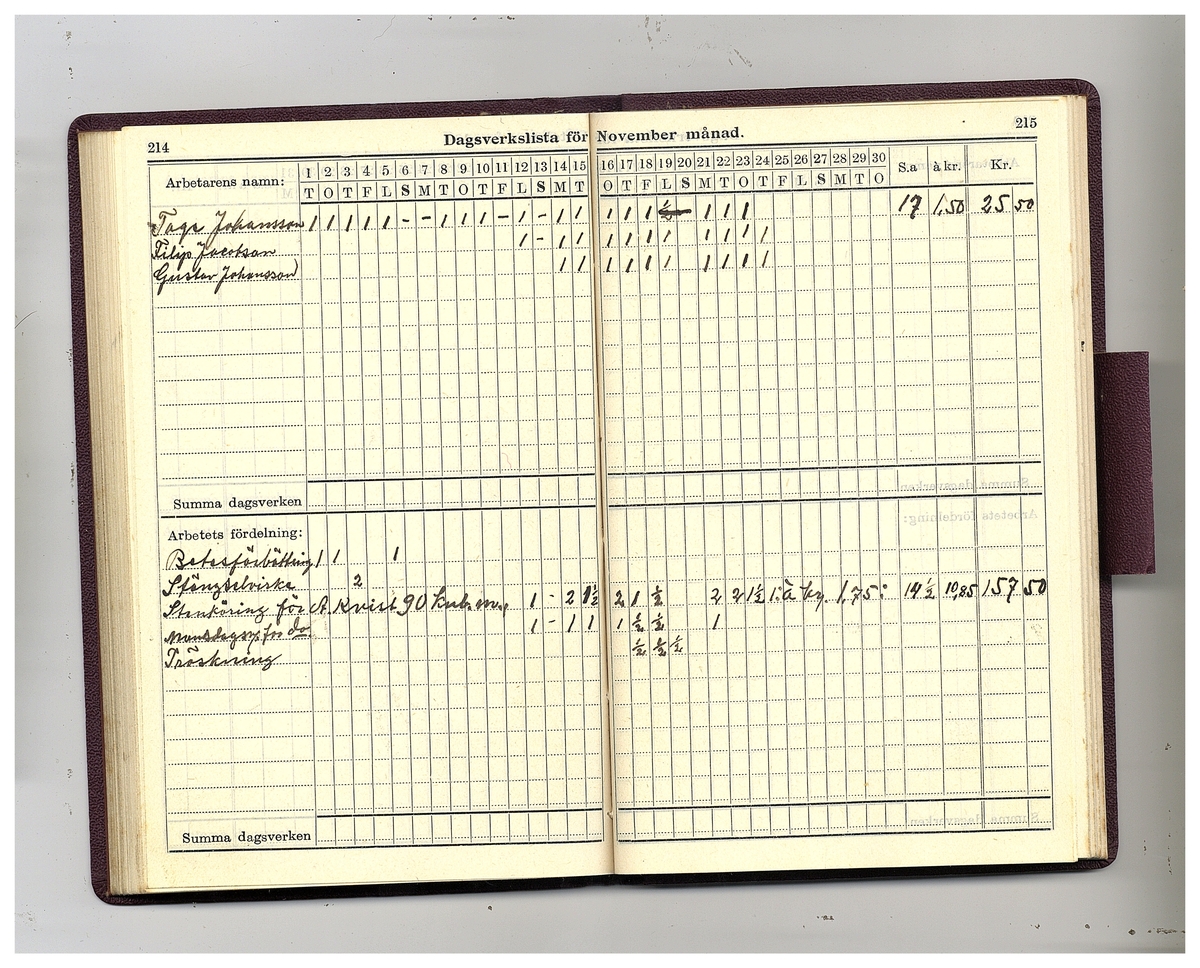 214
Dagsverkslista för November månad.
215
Arbetarens namn: 1 2 3 4 5 6 7 8 9 10 11 12 13 14 15 16 17 18 19 20 21 22 23 24 25 26 27 28 29 30 S:a à kr. Kr.
T O T F L S M T O T F L S M T O T F L S M T O T F L S M T O
Tage Johansson 1 1 1 1 1 - - 1 1 1 - 1 - 1 1 1 1 1 ½ 1 1 1 17 1,50 25 50
Filip Jacobson 1 - 1 1 1 1 1 1 1 1 1 1
Gustav Johansson 1 1 1 1 1 1 1 1 1 1
Summa dagsverken
Arbetets fördelning:
Betesförbättring 1 1 1
2
Stenköring för A. Kvist 90 kub.m., 1 - 2 1½ 2 1 ½ 2 2 1½ 1,75: 14½ 10,85 157 50
för do. 1 - 1 1 1 ½ ½ 1
Tröskning ½ ½ ½
Summa dagsverken